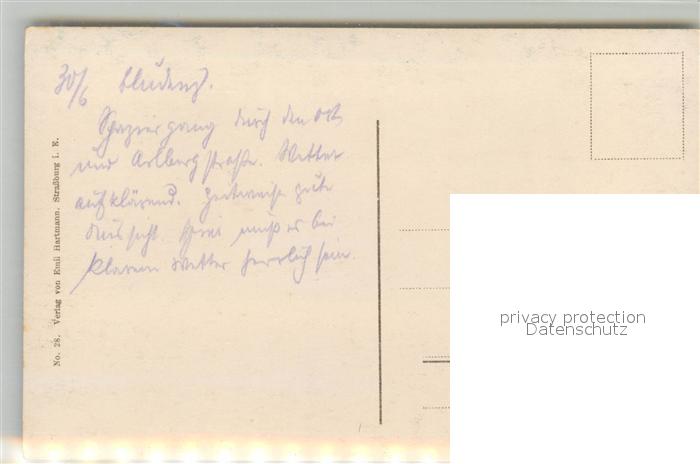 30/6 Bludenz.
Spaziergang durch den Ort
und Arlbergstraße. Wetter
aufklärend. Zeitweise gute
Aussicht. Hier muß es bei
klarem Wetter herrlich sein.
No. 28. Verlag von Emil Hartmann, Straßburg i. E.
privacy protection
Datenschutz